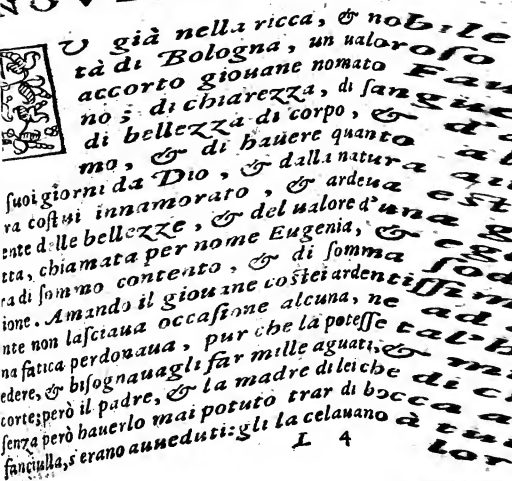 NOVE
V già nella ricca, & nobile
tà di Bologna, un ualoroso
accorto giouane nomato Fau
no; di chiarezza, di sangue
di bellezza di corpo, & d'a
mo, & di hauere quanto ab
suoi giorni da Dio, & dalla natura au
ra costui innamorato, & ardeua est
ente delle bellezze, & del ualore d'una g
tta, chiamata per nome Eugenia, & ege
ra di sommo contento, & di somma sod
ione. Amando il giouane costei ardentissim
nte non lasciaua occasione alcuna, ne ad
na fatica perdonaua, pur che la potesse tal'h
edere, & bisognauagli far mille aguati, & mi
corte; però il padre, & la madre di lei che di c
senza però hauerlo mai potuto trar di bocca a
fanciulla, s'erano auueduti: gli la celauano à tu
L 4 lor